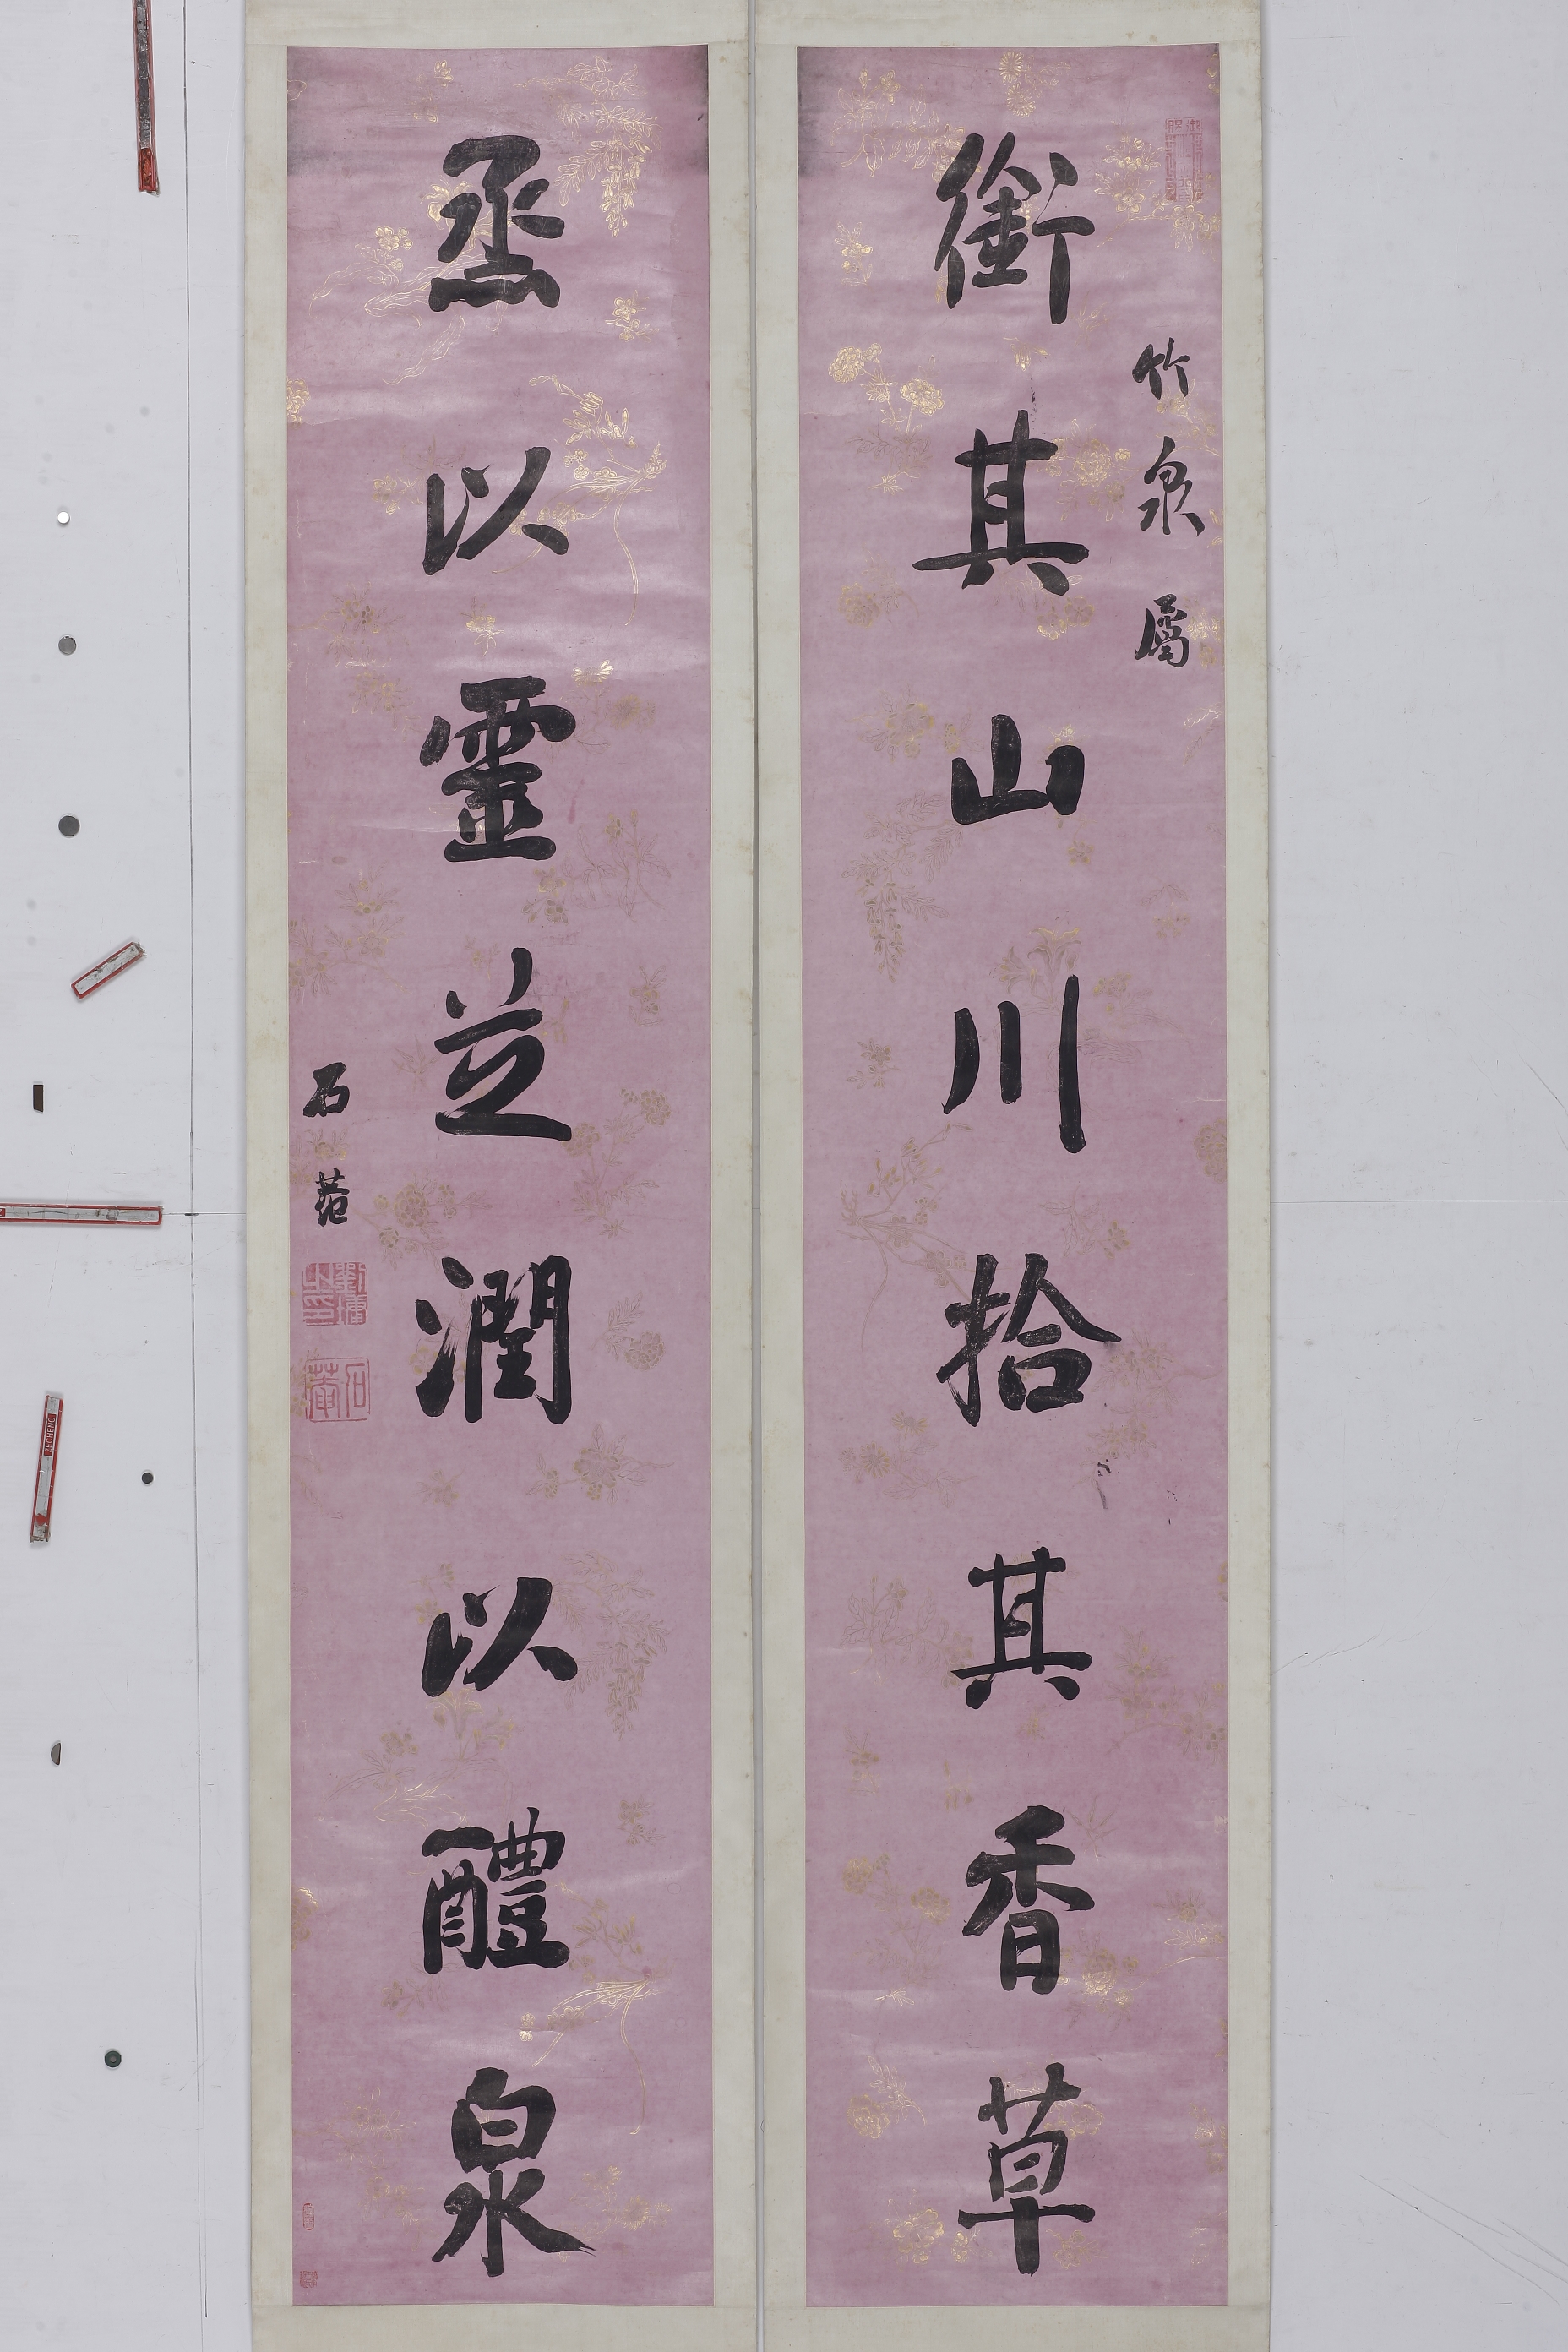 竹泉屬
銜其山川拾其香草
烝以靈芝潤以醴泉
石菴
劉墉之印
石菴
ZECHENG